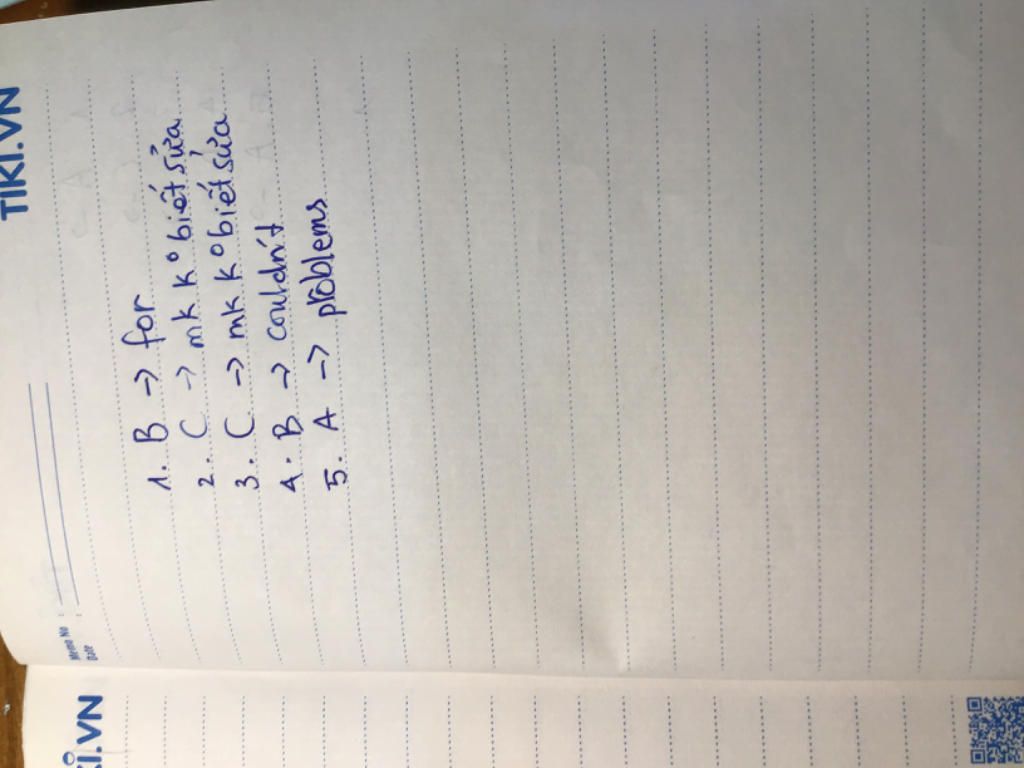 TIKI.VN
Memo No :
Date :
1. B → for
2. C → mk k° biết sửa
3. C → mk k° biết sửa
4. B → couldn't
5. A → problems
KI.VN